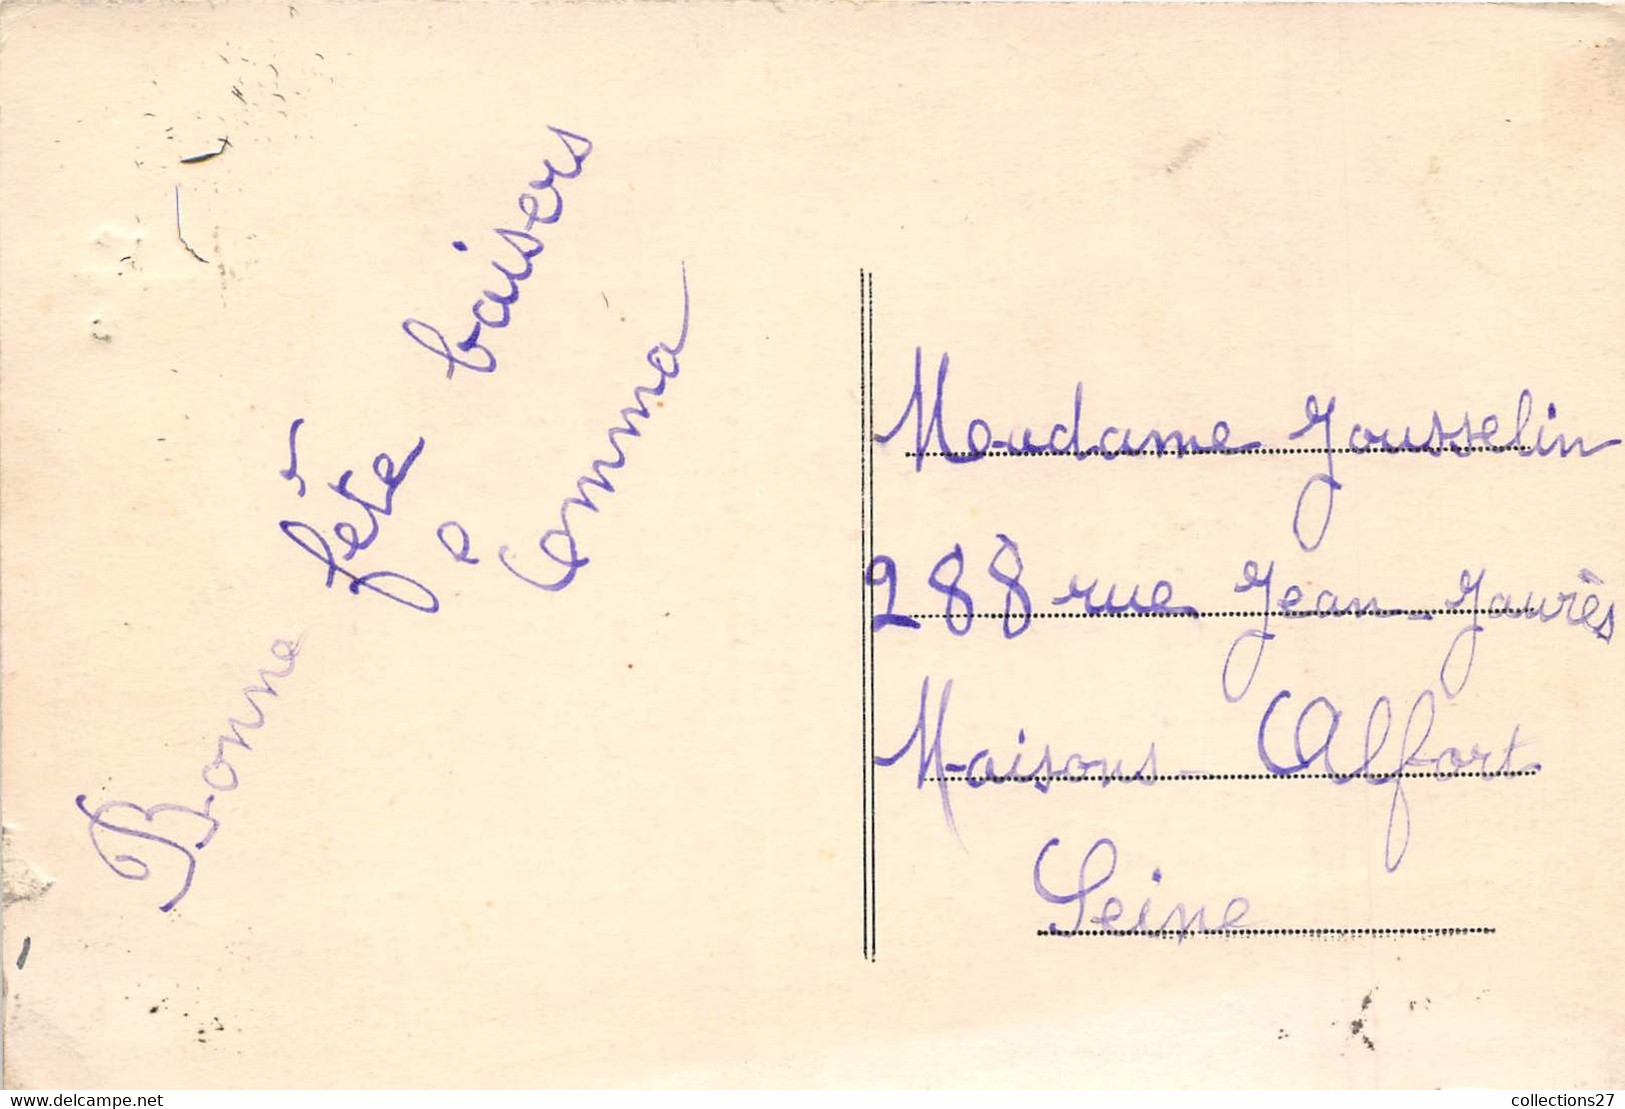 Bonne fête baisers
Emma
Madame Jousselin
288 rue Jean-Jaurès
Maisons-Alfort
Seine
collections27